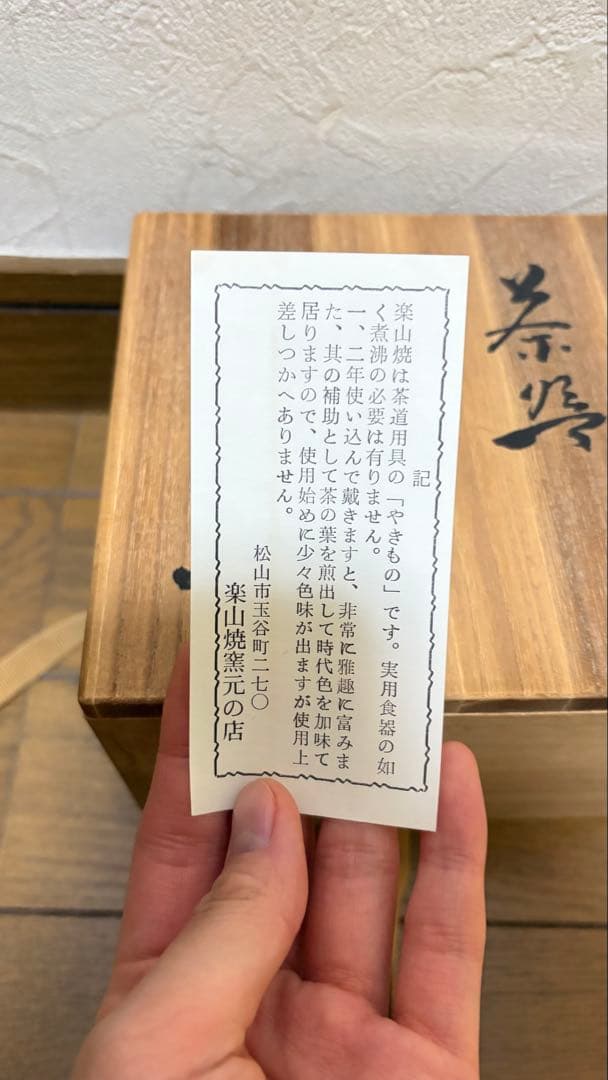 記
楽山焼は茶道用具の「やきもの」です。実用食器の如
く煮沸の必要は有りません。
一、二年使い込んで戴きますと、非常に雅趣に富みま
た、其の補助として茶の葉を煎出して時代色を加味て
居りますので、使用始めに少々色味が出ますが使用上
差しつかへありません。
松山市玉谷町二七〇
楽山焼窯元の店
茶